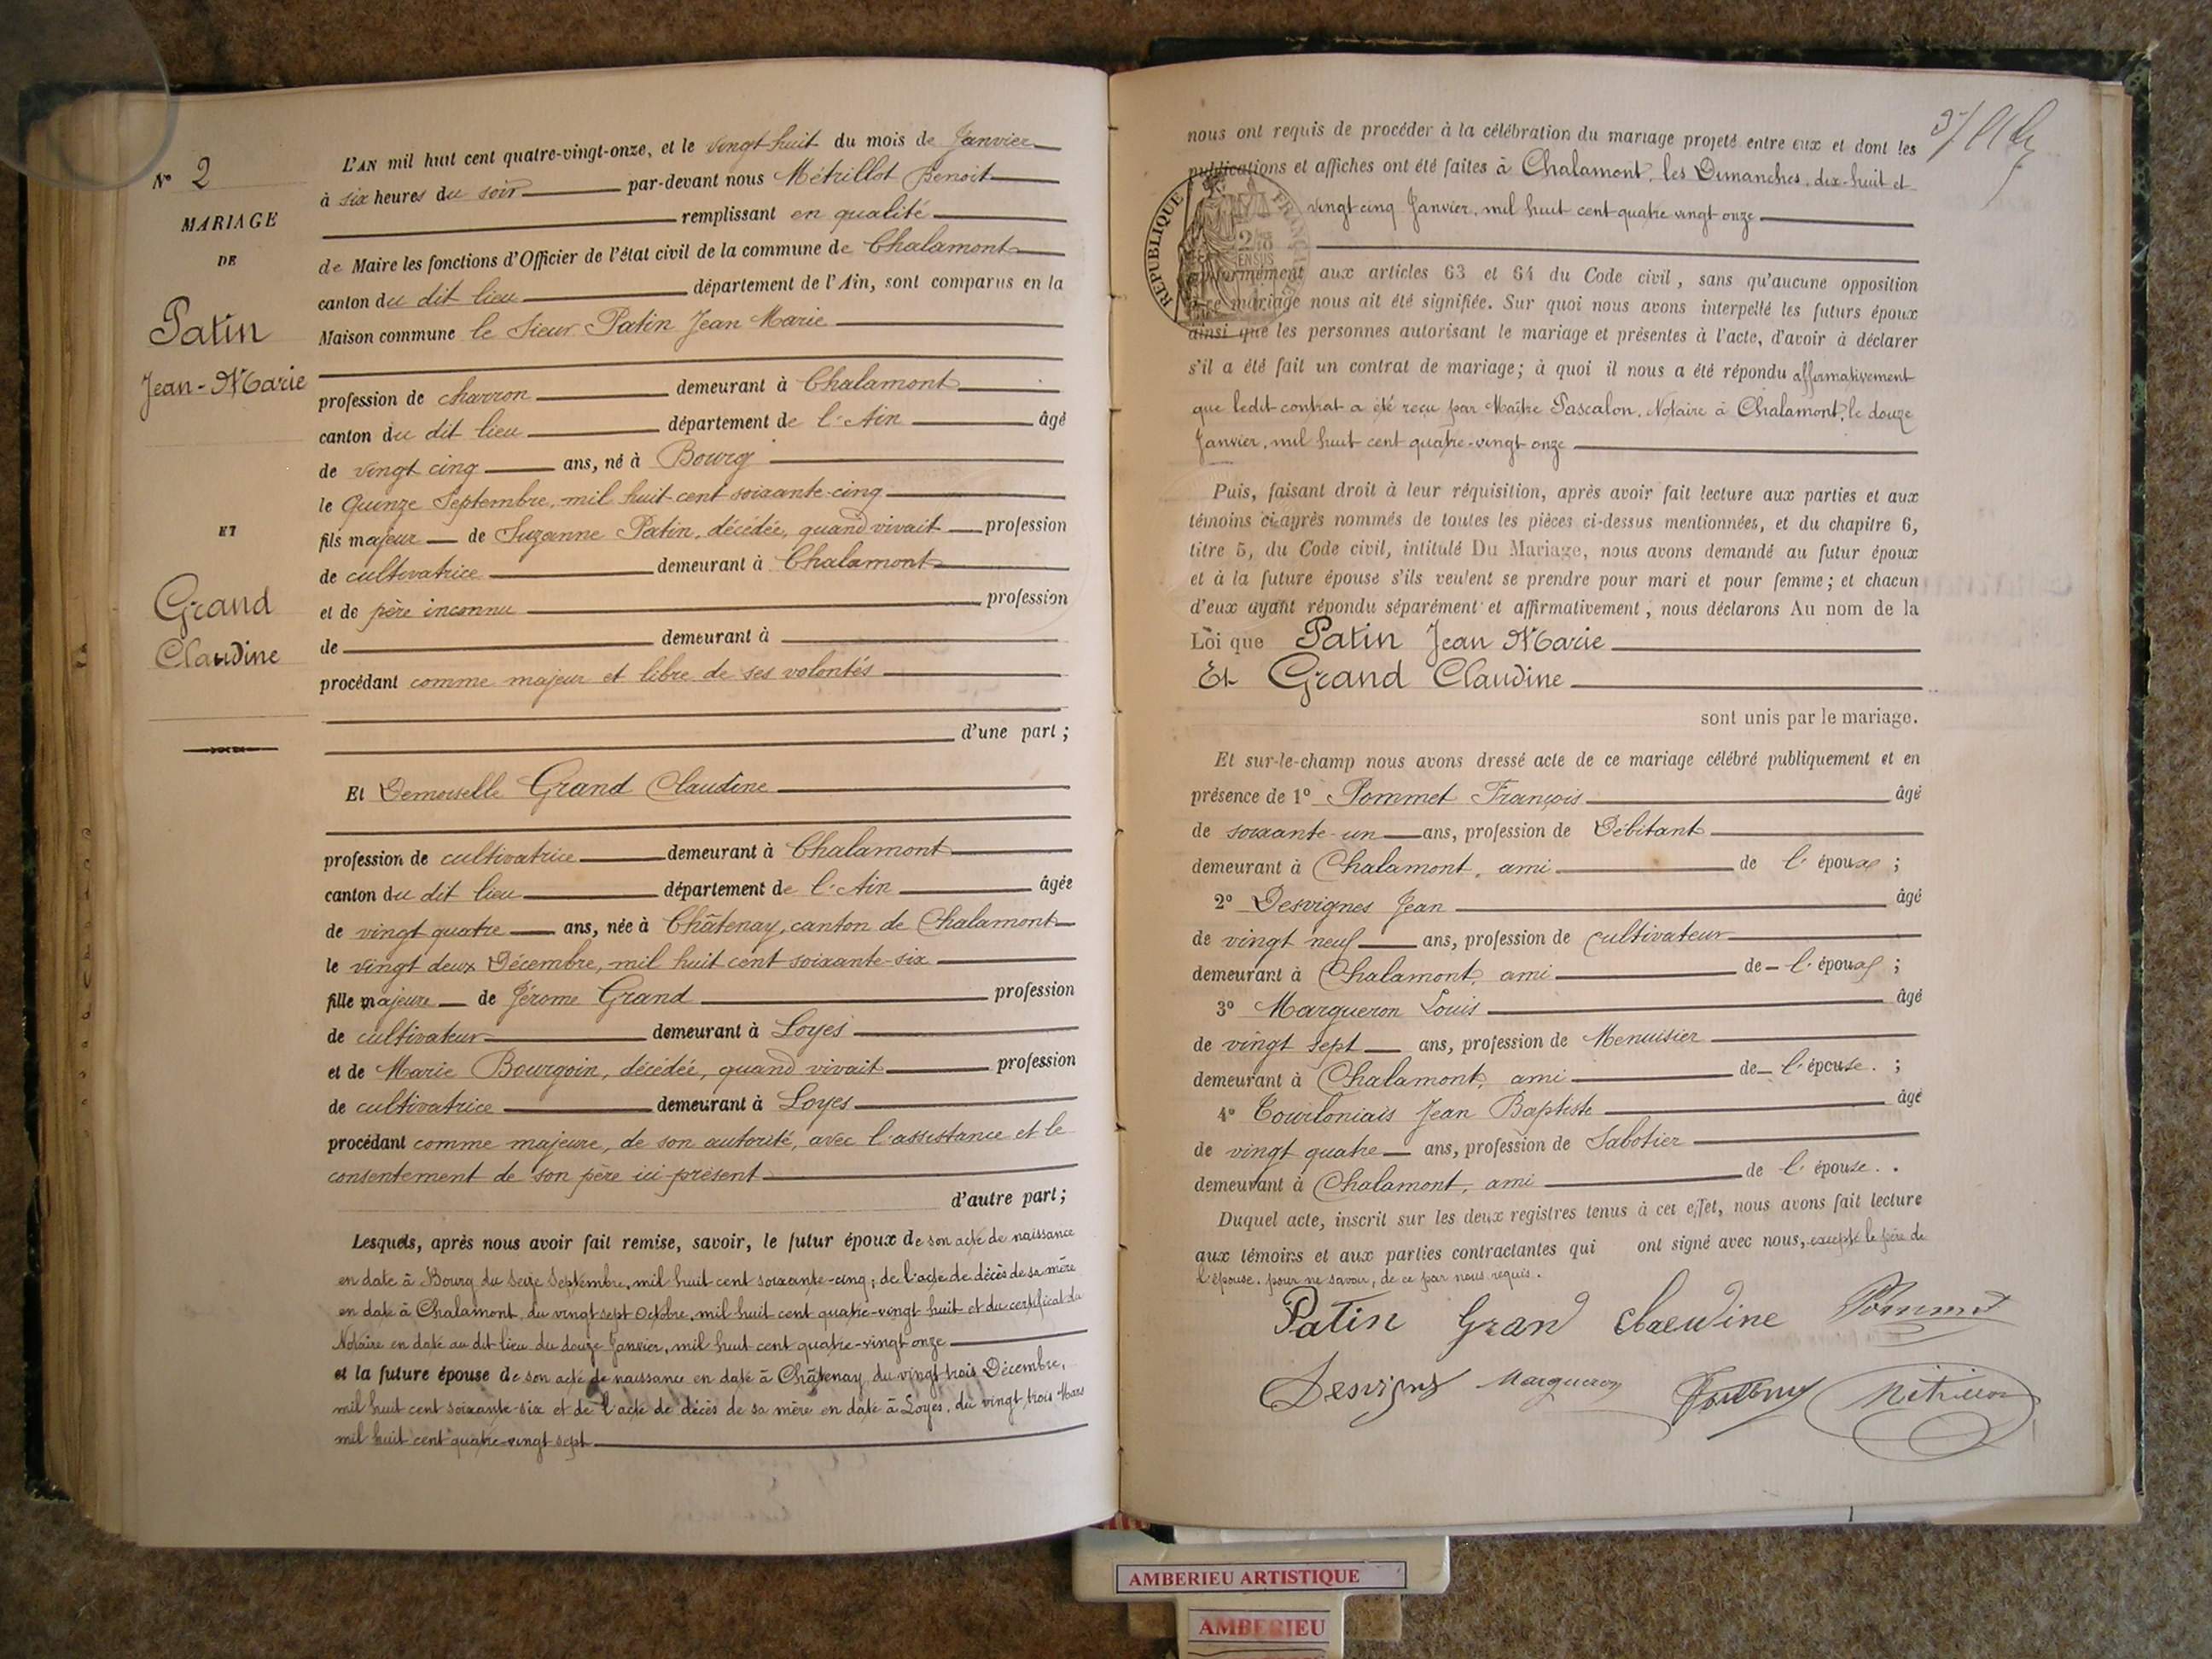 N° 2
MARIAGE
DE
Patin
Jean-Marie
ET
Grand
Claudine
L'AN mil huit cent quatre-vingt-onze, et le vingt huit du mois de Janvier
à six heures du soir par-devant nous Métrillot Benoit
remplissant en qualité
de Maire les fonctions d'Officier de l'état civil de la commune de Chalamont
canton du dit lieu département de l'Ain, sont comparus en la
Maison commune le Sieur Patin Jean Marie
profession de charron demeurant à Chalamont
canton du dit lieu département de l'Ain âgé
de vingt cinq ans, né à Bourg
le Quinze Septembre, mil huit-cent soixante-cinq
fils majeur de Suzanne Patin, décédée, quand vivait profession
de cultivatrice demeurant à Chalamont
et de père inconnu profession
de demeurant à
procédant comme majeur et libre de ses volontés
d'une part ;
Et Demoiselle Grand Claudine
profession de cultivatrice demeurant à Chalamont
canton du dit lieu département de l'Ain âgée
de vingt quatre ans, née à Châtenay, canton de Chalamont
le vingt deux Décembre, mil huit cent soixante-six
fille majeure de Jérome Grand profession
de cultivateur demeurant à Loyes
et de Marie Bourgoin, décédée, quand vivait profession
de cultivatrice demeurant à Loyes
procédant comme majeure, de son autorité, avec l'assistance et le
consentement de son père ici présent
d'autre part ;
Lesquels, après nous avoir fait remise, savoir, le futur époux de son acte de naissance
en date à Bourg du Seize Septembre, mil huit cent soixante-cinq ; de l'acte de décès de sa mère
en date à Chalamont, du vingt sept Octobre, mil huit cent quatre-vingt huit et du certificat du
Notaire en date au dit lieu du douze Janvier, mil huit cent quatre-vingt onze
et la future épouse de son acte de naissance en date à Châtenay, du vingt-trois Décembre,
mil huit cent soixante-six et de l'acte de décès de sa mère en date à Loyes, du vingt trois Mars
mil huit cent quatre-vingt sept
nous ont requis de procéder à la célébration du mariage projeté entre eux et dont les
publications et affiches ont été faites à Chalamont, les Dimanches, dix-huit et
vingt cinq Janvier, mil huit cent quatre vingt onze
RÉPUBLIQUE FRANÇAISE
conformément aux articles 63 et 64 du Code civil, sans qu'aucune opposition
à ce mariage nous ait été signifiée. Sur quoi nous avons interpellé les futurs époux
ainsi que les personnes autorisant le mariage et présentes à l'acte, d'avoir à déclarer
s'il a été fait un contrat de mariage ; à quoi il nous a été répondu affirmativement
que ledit contrat a été reçu par Maître Pascalon, Notaire à Chalamont, le douze
Janvier, mil huit cent quatre-vingt onze
Puis, faisant droit à leur réquisition, après avoir fait lecture aux parties et aux
témoins ci-après nommés de toutes les pièces ci-dessus mentionnées, et du chapitre 6,
titre 5, du Code civil, intitulé Du Mariage, nous avons demandé au futur époux
et à la future épouse s'ils veulent se prendre pour mari et pour femme ; et chacun
d'eux ayant répondu séparément et affirmativement, nous déclarons Au nom de la
Loi que Patin Jean Marie
Et Grand Claudine
sont unis par le mariage.
Et sur-le-champ nous avons dressé acte de ce mariage célébré publiquement et en
présence de 1° Pommet François âgé
de soixante-un ans, profession de Débitant
demeurant à Chalamont, ami de l'époux ;
2° Desvignes Jean âgé
de vingt neuf ans, profession de cultivateur
demeurant à Chalamont, ami de l'époux ;
3° Margueron Louis âgé
de vingt sept ans, profession de Menuisier
demeurant à Chalamont, ami de l'épouse. ;
4° Tourloniais Jean Baptiste âgé
de vingt quatre ans, profession de Sabotier
demeurant à Chalamont, ami de l'épouse. .
Duquel acte, inscrit sur les deux registres tenus à cet effet, nous avons fait lecture
aux témoins et aux parties contractantes qui ont signé avec nous, excepté le père de
l'épouse, pour ne savoir, de ce par nous requis.
Patin Grand Claudine Pommet
Desvignes Margueron Métrillot
AMBERIEU ARTISTIQUE
AMBERIEU